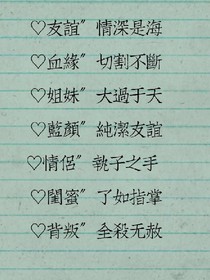 ♡友誼〞情深是海
♡血緣〞切割不斷
♡姐妹〞大過于天
♡藍顏〞純潔友誼
♡情侶〞執子之手
♡閨蜜〞了如指掌
♡背叛〞全殺无赦